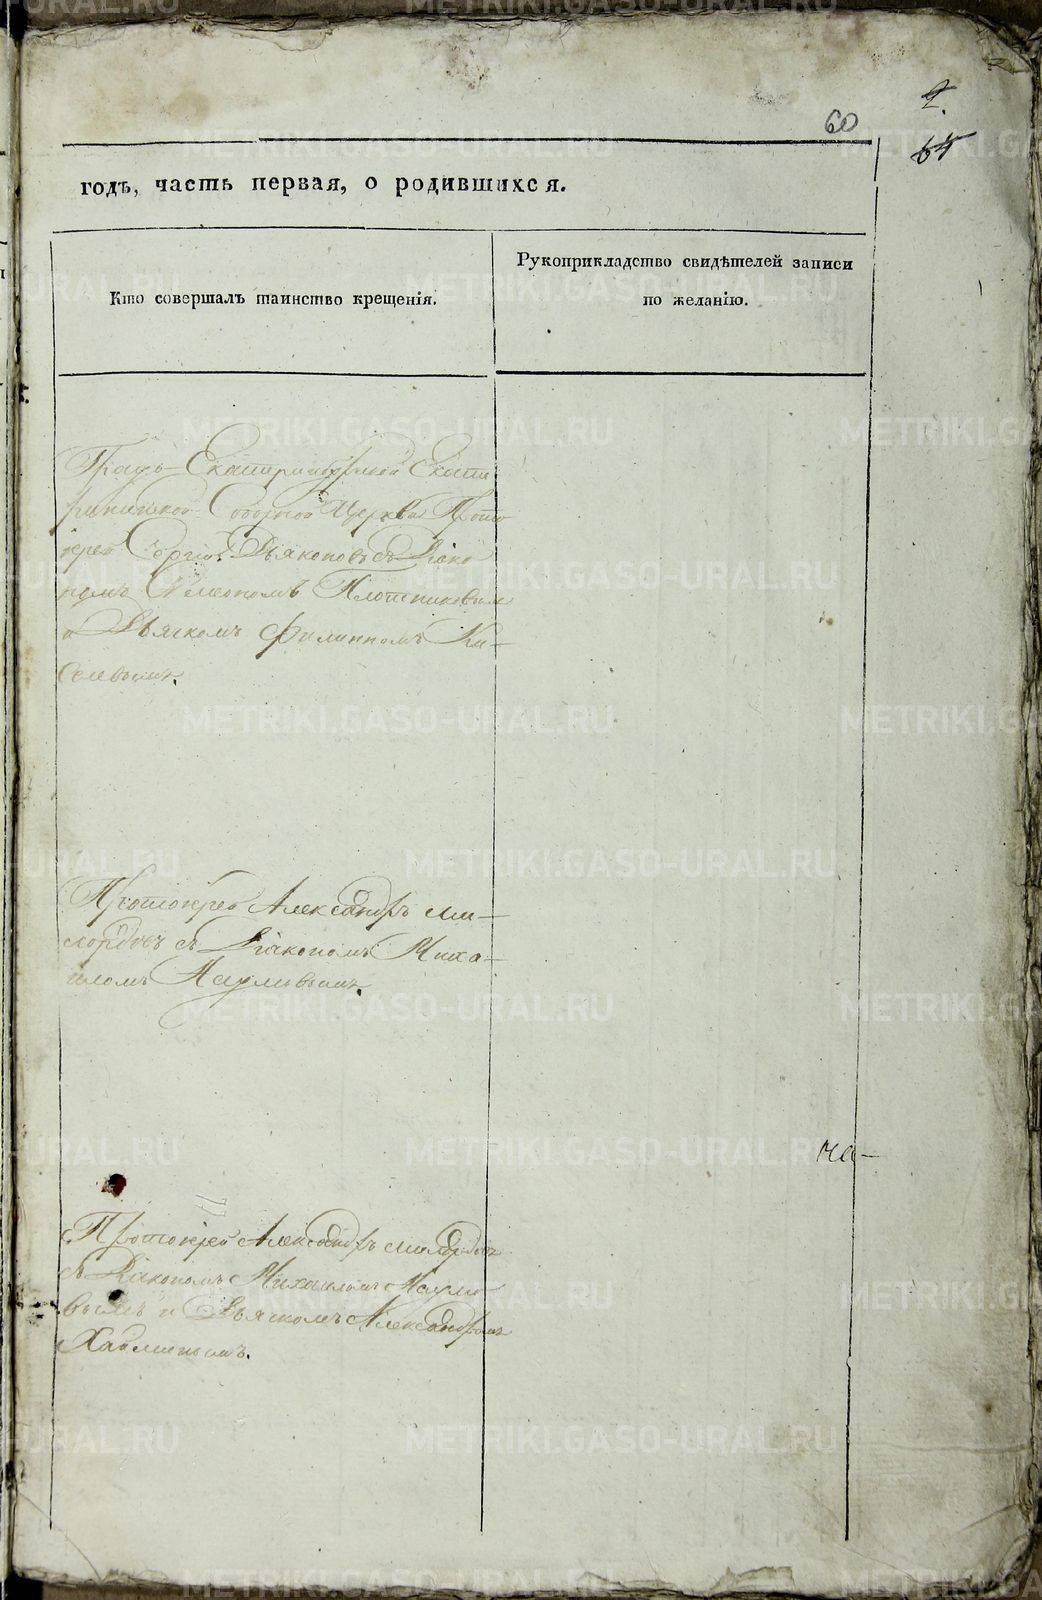 60
2.
64
годъ, часть первая, о родившихся.
Кто совершалъ таинство крещенія.
Рукоприкладство свидѣтелей записи
по желанію.
Градо-Екатеринбургской Екате
рининской Соборной Церкви Прото
іерей Сергій Дьяконовъ съ Діако
номъ Симеономъ Плотниковымъ
и Дьячкомъ Филиппомъ Ки-
селевымъ.
Протоіерей Александръ Ми-
лордовъ съ Діакономъ Миха-
иломъ
Протоіерей Александръ Милордовъ
съ Діакономъ Михаиломъ
вымъ и Дьячкомъ Александромъ
METRIKI.GASO-URAL.RU